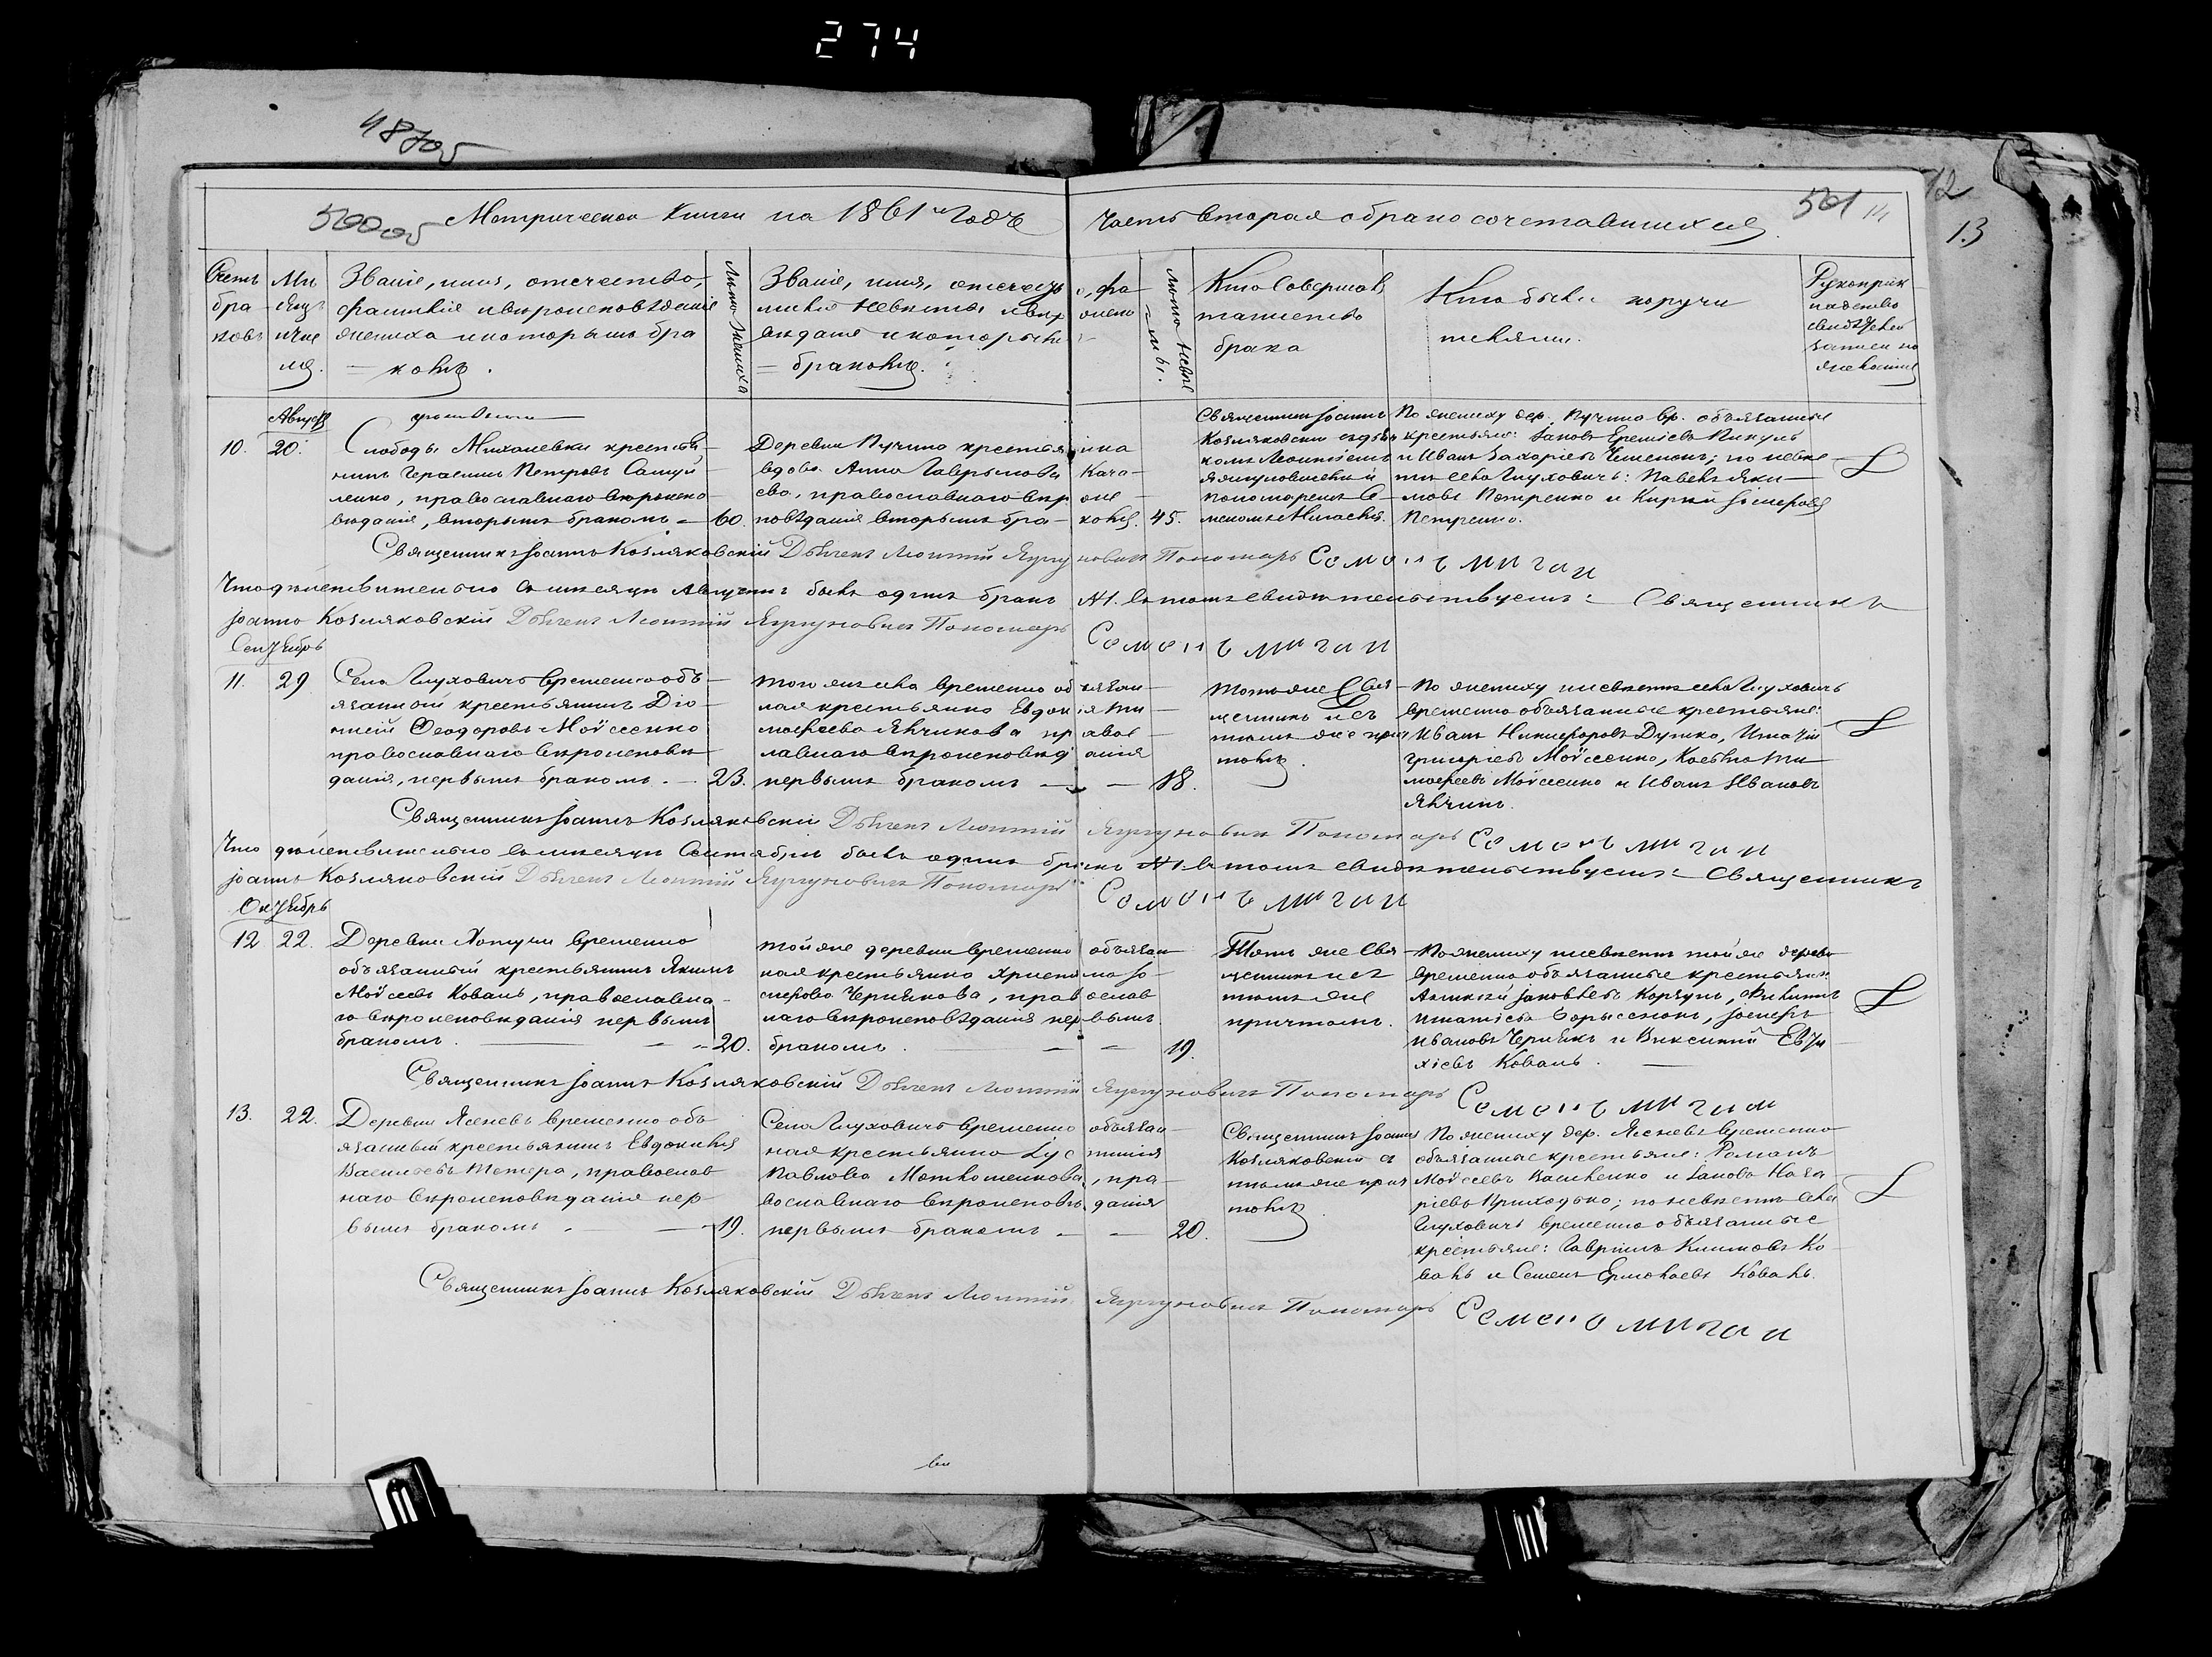 274
487об
500об Метрической Книги на 1861й Годъ Часть вторая о бракосочетавшихся. 501
12
13
Счетъ бра- ковъ
Мѣ- сяцъ и чис ла.
Званіе, имя, отечество, фамилія и вѣроисповѣданіе жениха и которымъ бра- комъ.
Лѣта жениха
Званіе, имя, отечество, фа- милія невѣсты и вѣроиспо- вѣданіе и которымъ - бракомъ.
Лѣта невѣс- ты.
Кто Совершалъ таинство брака
Кто были поручи- тели.
Рукоприк- ладство свидѣтелей записи по желанію
Августъ
10. 20.
Слободы Михалевки крестья-
нинъ Герасимъ Петровъ Самуй-
ленко, православнаго вѣроиспо-
вѣданія, вторымъ бракомъ - 60.
Деревни Пучина крестьянка
вдова Анна Гаврылова Кача-
ева, православнаго вѣроис-
повѣданія вторымъ бра- комъ. 45.
Священникъ Іоаннъ
Козляковскій съ дья-
комъ Леонтіемъ
Ягнуновичемъ и
пономаремъ Се-
меномъ
По жениху дер. Пучина вр. обязанные
крестьяне: Іаковъ Еремѣевъ Пикуль
и Иванъ Захаріевъ; по невѣс-
тѣ села Глуховичъ: Павелъ Яки-
мовъ Петренко и Киръ Іосифовъ
Петренко.
Священникъ Іоаннъ Козляковскій Дьячекъ Леонтій Пономарь Семенъ
Что дѣйствительно въ мѣсяцѣ Августѣ былъ одинъ бракъ №1. въ томъ свидѣтельствуемъ: Священникъ
Іоаннъ Козляковскій Дьячекъ Леонтій Пономарь Семенъ
Сентябрь
11. 29
Села Глуховичъ временно-объ-
язанный крестьянинъ Діо-
нисій Ѳеодоровъ Моѵсеенко
православнаго вѣроисповѣ-
данія, первымъ бракомъ. - 23.
Того же села временно обязан-
ная крестьянка Евдокія Ти-
моѳеева Яльчикова правос-
лавнаго вѣроисповѣданія
первымъ бракомъ - 18.
Тотъ же Свя-
щенникъ съ
тѣмъ же прич-
томъ.
По жениху и невѣстѣ села Глуховичъ
временно обязанные крестьяне:
Иванъ Никифоровъ Дутко, Игнатій
Григоріевъ Моѵсеенко, Ти-
моѳеевъ Моѵсеенко и Иванъ Ивановъ
Яльчикъ.
Священникъ Іоаннъ Козляковскій Дьячекъ Леонтій Пономарь Семенъ
Что дѣйствительно въ мѣсяцѣ Сентябрѣ былъ одинъ бракъ №1. въ томъ свидѣтельствуемъ: Священникъ
Іоаннъ Козляковскій Дьячекъ Леонтій Пономарь Семенъ
Октябрь
12 22.
Деревни временно
объязанный крестьянинъ Якимъ
Моѵсеевъ Коваль, православна-
го вѣроисповѣданія первымъ
бракомъ. - 20.
Той же деревни временно объязан-
ная крестьянка Христина Іо-
сифова Чернякова, православ-
наго вѣроисповѣданія первымъ
бракомъ. - 19.
Тотъ же Свя-
щенникъ съ
тѣмъ же
причтомъ.
По жениху и невѣстѣ той же деревни
временно объязанные крестьяне:
Алексѣй Іаковлевъ Коржунъ, Филиппъ
Игнатіевъ Борысенокъ, Іосифъ
Ивановъ Чернякъ и Евти-
хіевъ Коваль.
Священникъ Іоаннъ Козляковскій Дьячекъ Леонтій Пономарь Семенъ
13. 22.
Деревни Ясеневъ временно объ-
язанный крестьянинъ Евдокимъ
Васильевъ Тетера, православ-
наго вѣроисповѣданія пер-
вымъ бракомъ. - 19.
Села Глуховичъ временно объязан-
ная крестьянка Іустинія
Павлова, пра-
вославнаго вѣроисповѣданія
первымъ бракомъ. - 20.
Священникъ Іоаннъ
Козляковскій съ
тѣмъ же прич-
томъ.
По жениху дер. Ясеневъ временно
объязанные крестьяне: Романъ
Моѵсеевъ Василенко и Іаковъ Наза-
ріевъ Приходько; по невѣстѣ села
Глуховичъ временно объязанные
крестьяне: Гавриилъ Климовъ Ко-
валь и Семенъ Ермолаевъ Коваль.
Священникъ Іоаннъ Козляковскій Дьячекъ Леонтій Пономарь Семенъ